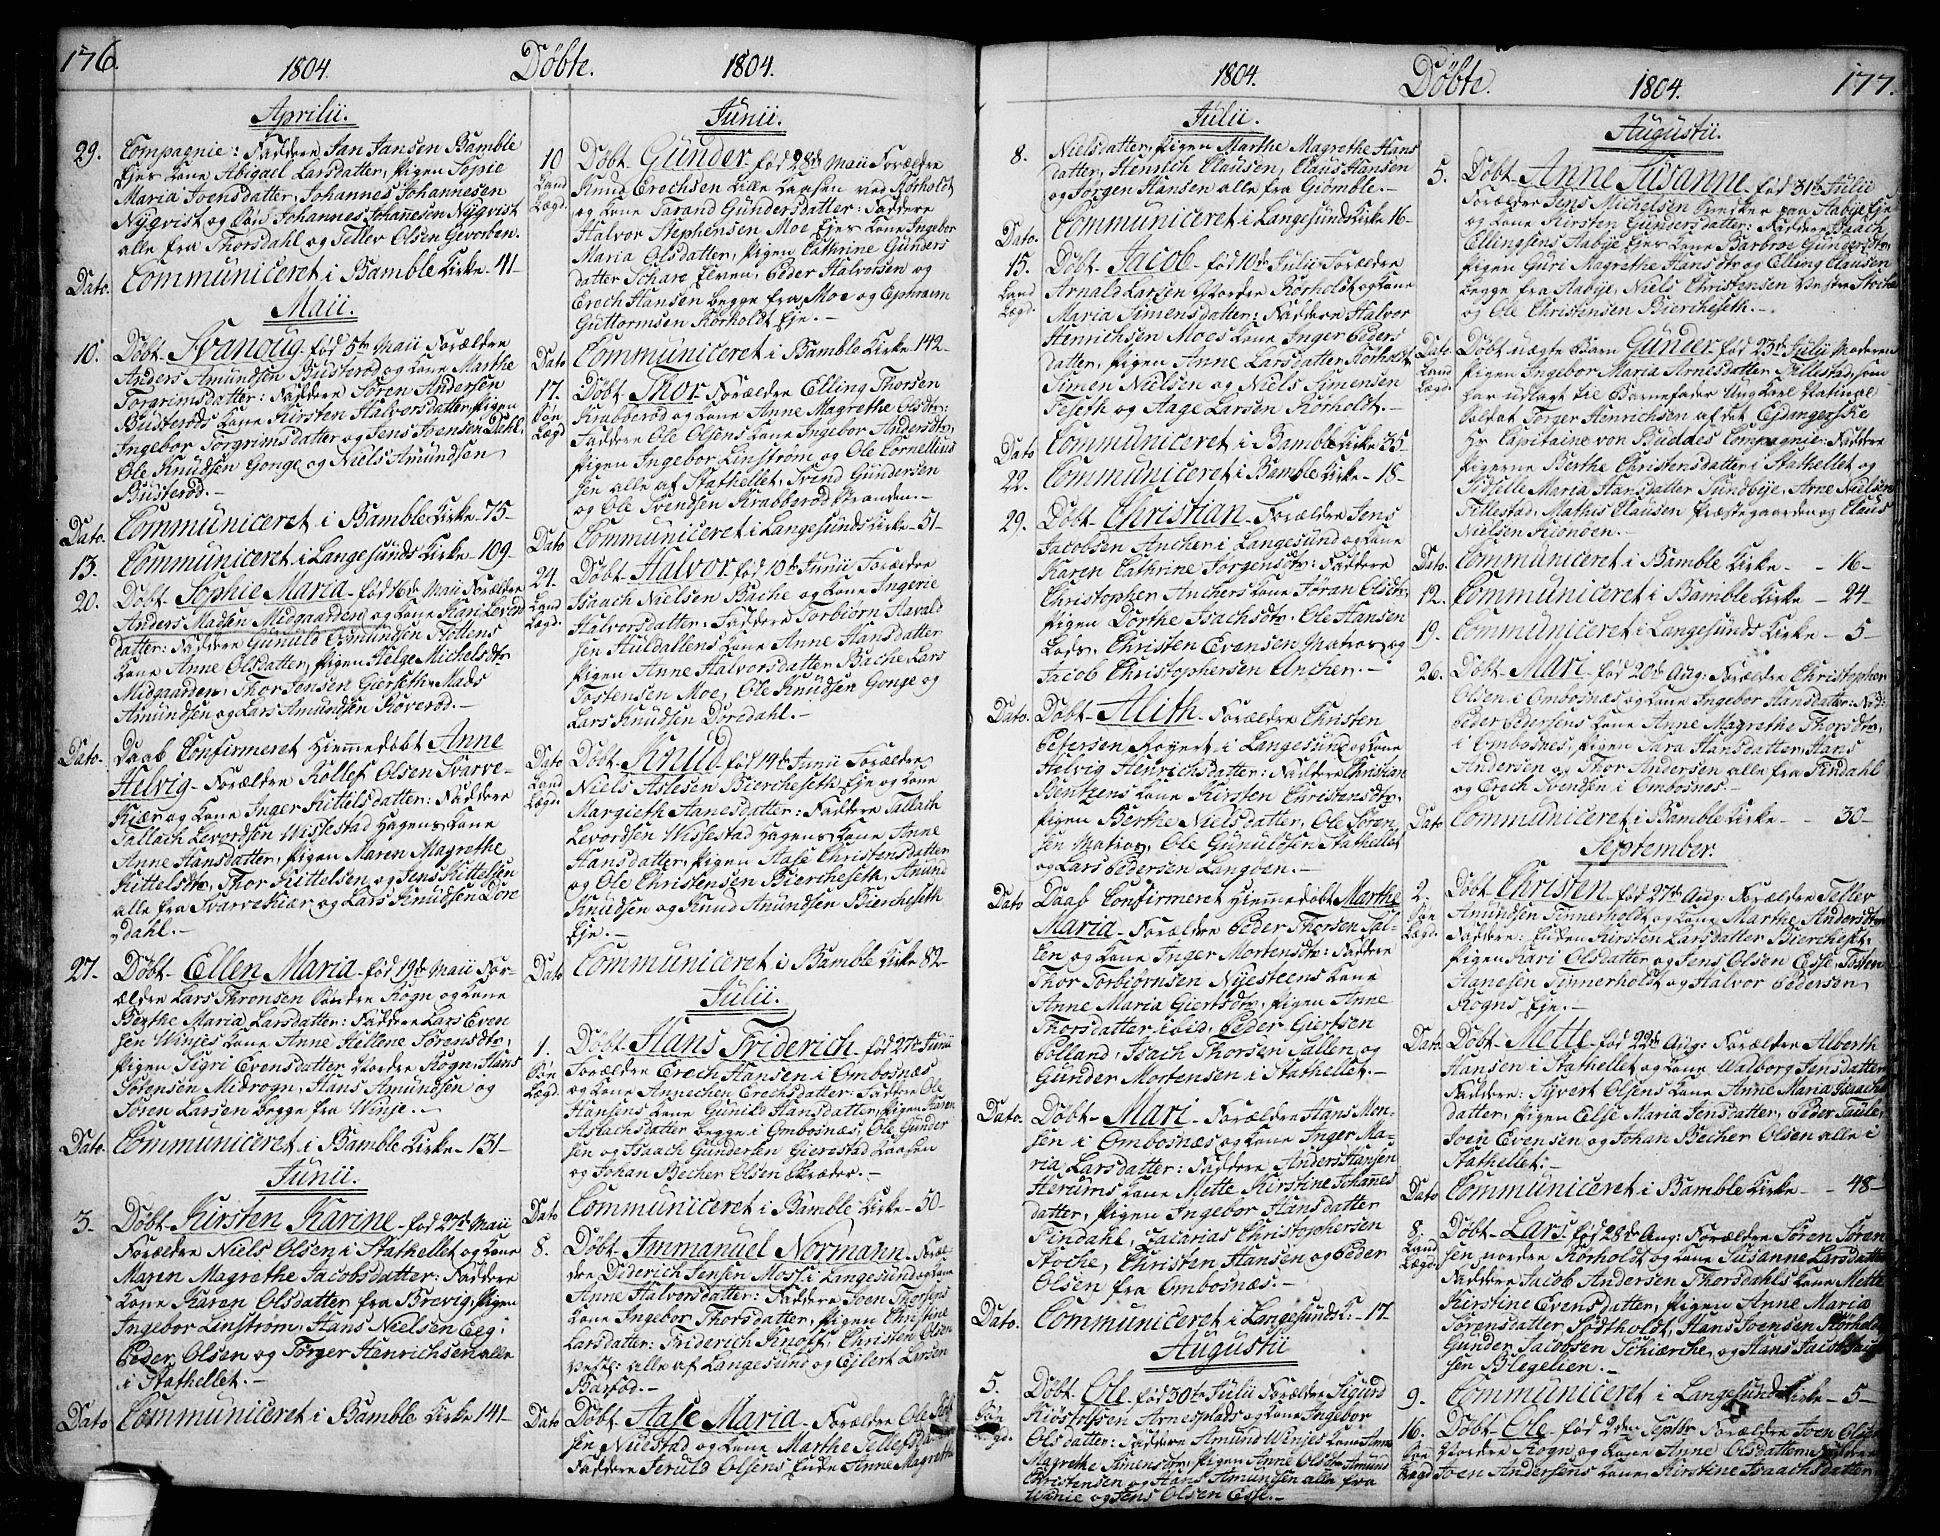 176.
1804. Döbte. 1804.
Aprilii
29. Compagnie: Faddere Jan Jansen Bamble
Ejes Kone Abigael Larsdatter, Pigen Sophie
Maria Joensdatter, Johannes Johannesen
Nÿqvist og Søn Johannes Johanesen Nÿqvist
alle fra Thorsdahl og Tellev Olsen Gevorben.
Dato. Communiceret i Bamble Kirke - 41 -
Maii.
10. Döbt Svanoug - fød 5te Maii Forældre
Anders Amundsen Busterød og Kone Marthe
Torgrimsdatter: Faddere Søren Andersen
Busterøds Kone Kirsten Halvorsdatter, Pigen
Ingebor Torgrimsdatter og Jens Joensen Dahl,
Ole Knudsen Gonge og Niels Amundsen
Busterød. -
Dato. Communiceret i Bamble Kirke - 75 -
13. Communiceret i Langesunds Kirke - 109 -
20. Döbt Sophie Maria - fød 16de Maii Forældre
Anders Madsen Midgaarden og Kone Kari Levords
datter: Faddere Gunuld Edmundsen Flottens
Kone Anne Olsdatter, Pigen Helge Michelsdtr
Midgaarden, Thor Jensen Gierseth, Mads
Amundsen og Lars Amundsen Roverød. -
Dato. Daab Confirmeret hiemmedøbt Anne
Helvig - Forældre Kollef Olsen Svarve-
Kiær og Kone Inger Kittelsdatter: Faddere
Tallach Levordsen Wissestad Hagens Kone
Anne Hansdatter, Pigen Maren Magrethe
Kittelsdtr, Thor Kittelsen og Jens Kittelsen
alle fra Svarvekiær og Lars Knudsen Dore
dahl. -
27. Döbt - Ellen Maria - fød 19de Maii For-
ældre Lars Thronsen Søndre Rogn og Kone
Berthe Maria Larsdatter: Faddere Lars Even
sen Winjes Kone Anne Hellene Sørensdtr,
Pigen Sigri Evensdatter Nordre Rogn, Hans
Sørensen Midrogn, Hans Amundsen og
Søren Larsen begge fra Winje. -
Dato. Communiceret i Bamble Kirke - 131 -
Junii.
3. Döbt - Kirsten Karine - fød 27de Maii
Forældre Niels Olsen i Stathellet og Kone
Maren Magrethe Jacobsdatter: Faddere
Kone Karen Olsdatter fra Brevig, Pigen
Ingebor Linstrøm, Hans Nielsen Eeg,
Peder Olsen og Torger Henrichsen alle
i Stathellet. -
Dato Communiceret i Bamble Kirke - 141 -
Junii.
10 Döbt Gunder - fød 28de Maii Forældre
Land Knud Erechsen Lille Laasen ved Rørholdt
Lægd. og Kone Tarand Gundersdatter: Faddere
Halvor Stephensen Moe Ejes Kone Ingebor
Maria Olsdatter, Pigen Cathrine Gunders
datter Schare Elven, Peder Halvorsen og
Erech Hansen begge fra Moe og Ephraim
Guttormsen Rørholdt Eje. -
Dato Communiceret i Bamble Kirke - 142 -
17. Döbt Thor - Forældre Elling Thorsen
Søn Krabberød og Kone Anne Magrethe Olsdtr:
Lægd Faddere Ole Olsens Kone Ingebor Andersdtr,
Pigen Ingebor Linstrøm og Ole Cornelius
sen alle af Stathellet, Svind Gundersen
og Ole Svendsen Krabberød Stranden. -
Dato Communiceret i Langesunds Kirke - 51 -
24. Döbt Halvor - fød 10de Junii Forældre
Land Isaach Nielsen Bache og Kone Ingerie
Lægd. Halvorsdatter: Faddere Torbiørn Havald
sen Huldallens Kone Anne Hansdatter
Pigen Anne Halvorsdatter Bache, Lars
Tostensen Moe, Ole Knudsen Gonge og
Lars Knudsen Doredahl. -
Dato Döbt - Knud - fød 14de Junii Forældre
Land Niels Aslesen Biercheseth Eje og Kone
Lægd. Margieth Hanesdatter: Faddere Tallach
Levordsen Wissestad Hagens Kone Anne
Hansdatter, Pigen Aase Christensdatter
og Ole Christensen Biercheseth, Amund
Knudsen og Knud Amundsen Biercheseth
Eje. -
Dato Communiceret i Bamble Kirke 82 -
Julii.
1. Döbt Hans Friderich - fød 27de Junii
Søn Forældre Erech Hansen i Ombosnæs
Lægd. og Kone Annechen Erechsdatter: Faddere Ole
Hansens Kone Gunild Hansdatter, Pigen Karen
Aslachsdatter begge i Ombosnæs, Ole Gunder
sen og Isaach Gundersen Gierestad Laasen
og Johan Becher Olsen Skræder. -
Dato Communiceret i Bamble Kirke - 50 -
8. Döbt - Immanuel Normann - Foræl-
dre Diderich Jensen Most i Langesund og Kone
Anne Halvorsdatter: Faddere Joen Thorsens
Kone Ingebor Thorsdatter, Pigen Christine
Larsdatter, Friderich Knoff, Christen Olsen
Vest: alle af Langesund og Ejlert Larsen
Barsød. -
Dato Döbt - Aase Maria - Forældre Ole
sen Nuestad og Kone Marthe Tellefsdatter
Faddere Jeruld Olsens Enke Anne Magrethe
1804. Döbte. 1804. 177.
Julii.
8. Nielsdatter, Pigen Marthe Magrethe Hans
datter, Henrich Clausen, Claus Hansen
og Jørgen Hansen alle fra Giømble. -
Dato. Communiceret i Langesunds Kirke 16 -
15. Döbt - Jacob - fød 10de Julii Forældre
Land Arnald Larsen Nordre Rørholdt og Kone
Lægd. Maria Simensdatter: Faddere Halvor
Henrichsen Moes Kone Inger Peders
datter, Pigen Anne Larsdatter Rørholdt,
Simen Nielsen og Niels Simensen
Teseth og Aage Larsen Rørholdt. -
Dato Communiceret i Bamble Kirke 35 -
22. Communiceret i Bamble Kirke - 18 -
29. Döbt - Christian - Forældre Jens
Jacobsen Ancher i Langesund og Kone
Karen Cathrine Jørgensdtr: Faddere
Christopher Anchers Kone Jøran Olsdtr,
Pigen Dorthe Isachsdtr, Ole Hansen
Lods, Christen Evensen Matros og
Jacob Christophersen Ancher. -
Dato. Döbt - Alith - Forældre Christen
Petersen Røyert i Langesund og Kone
Helvig Henrichsdatter: Faddere Christian
Bentzens Kone Kirsten Christensdtr,
Pigen Berthe Nielsdatter, Ole Søren
sen Matros, Ole Gunuldsen Stathellet
og Lars Pedersen Langøen. -
Dato Daab Confirmeret hiemmedøbt Marthe
Maria - Forældre Peder Thorsen Sal-
len og Kone Inger Mortensdtr: Faddere
Thor Torbiørnsen Nyesteens Kone
Anne Maria Giertsdtr, Pigen Anne
Thorsdatter ibid, Peder Giertsen
Polland, Isach Thorsen Sallen og
Gunder Mortensen i Stathellet. -
Dato. Döbt - Mari - Forældre Hans Mon-
sen i Ombosnæs og Kone Inger Ma-
ria Larsdatter: Faddere Anders Hansen
Herums Kone Mette Kirstine Johanes
datter, Pigen Ingebor Hansdatter
Findahl, Zacarias Christophersen
Stoche, Christen Hansen og Peder
Olsen fra Ombosnæs. -
Dato. Communiceret i Langesunds K: - 17 -
Augustii
5. Döbt - Ole - fød 30te Julii Forældre Sigurd
Søn Kiøstolfsen Arnesplads og Kone Ingebor
Lægd. Olsdatter: Faddere Amund Winjes Kone Anne
Magrethe Simensdtr, Pigen Anne Olsdtr, Amund
Christensen og Hans Amundsen alle fra
Winje og Jens Olsen Esse. -
Augustii.
5. Döbt - Anne Susanne - fød 31te Julii
Forældre Jens Michelsen Svenske paa Aabÿe Eje
og Kone Kirsten Gundersdatter: Faddere Isaach
Ellingsens Aabÿe Ejes Kone Barbroe Gundersdtr,
Pigen Guri Magrethe Hansdtr og Elling Clausen
begge fra Aabÿe, Niels Christensen Vestre
og Ole Christensen Biercheseth. -
Dato. Döbt uægte Barn Gunder fød 23de Julii Moderen
Land Pigen Ingebor Maria Arnesdatter Tillestad, som
Lægd. har udlagt til Barnefader Ungkarl National
Soldat Torger Henrichsen af det Ejdangerske
Hr Capitaine von Buddes Compagnie: Faddere
Pigerne Berthe Christensdatter i Stathellet og
Sidselle Maria Hansdatter Sundbÿe, Arne Nielsen
Tillestad, Mathis Clausen Præstegaarden og Claus
Nielsen Feionben. -
Dato. Communiceret i Bamble Kirke - - 16 -
12. Communiceret i Bamble Kirke - 24 -
19. Communiceret i Langesunds Kirke - 5 -
26. Döbt - Mari - fød 20de Aug: Forældre Christopher
Olsen i Ombosnæs og Kone Ingebor Hansdatter: Fadd:
Peder Pedersens Kone Anne Magrethe Thorsdtr,
i Ombosnes, Pigen Sara Hansdatter, Hans
Andersen og Thor Andersen alle fra Findahl
og Erech Svendsen i Ombosnes. -
Dato Communiceret i Bamble Kirke - - 30 -
September.
2. Döbt - Christen - fød 27de Aug: Forældre Tellev
Søn Amundsen Tinnerholdt og Kone Marthe Andersdtr,
Lægd. Faddere: Enken Kirsten Larsdatter Bierchest,
Pigen Kari Olsdatter og Jens Olsen Esse, Tosten
Hanesen Tinnerholdt og Halvor Pedersen
Rogns Eje. -
Dato. Döbt - Mette - fød 22de Aug: Forældre Alberth
Hansen i Stathellet og Kone Walborg Jensdatter
Faddere: Syvert Olsens Kone Anne Maria Isaachs
datter, Pigen Else Maria Jensdatter, Peder Taule,
Joen Evensen og Johan Becher Olsen alle i
Stathellet. -
Dato Communiceret i Bamble Kirke - - 48 -
8. Döbt - Lars - fød 28de Aug: Forældre Søren Søren
Land sen nordre Rørholdt og Kone Susanne Larsdatter
Lægd. Faddere Jacob Andersen Thorsdahls Kone Mette
Kirstine Evensdatter, Pigen Anne Maria
Sørensdatter Fødtholdt, Hans Joensen Rørholdt
Gunder Jacobsen Schierche, og Hans Jacob
sen Blegelien. -
9. Communiceret i Langesund Kirke - 5 -
16. Döbt - Ole - fød 2den Septbr Forældre Joen Olsen
Søn Nordre Rogn og Kone Anne Olsdatter: Faddere
Lægd Joen Andersens Kone Kirstine Isaachsdatter